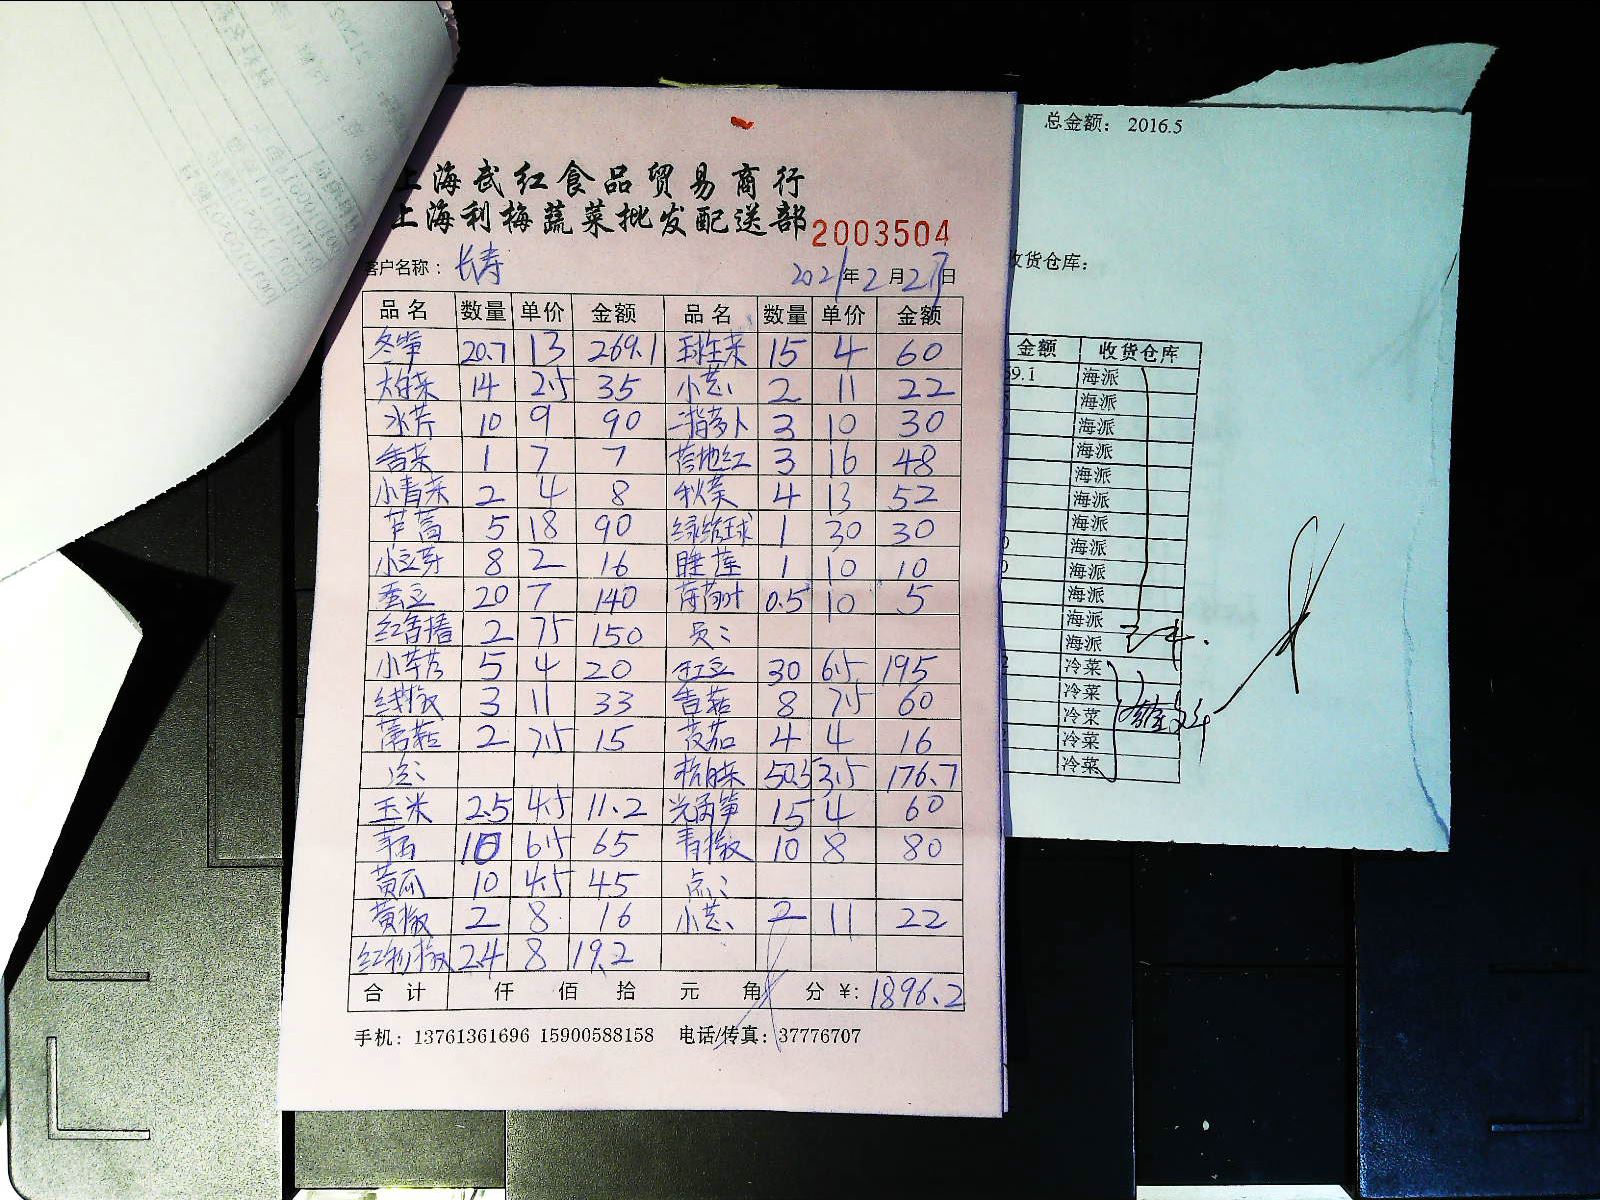 总金额： 2016.5
上海武红食品贸易商行
上海利梅蔬菜批发配送部 2003504
客户名称： 长寿 2021年2月27日
收货仓库：
品名 数量 单价 金额 品名 数量 单价 金额
冬笋 20.7 13 269.1 15 4 60
大白菜 14 2.5 35 小葱 2 11 22
水芹 10 9 90 3 10 30
香菜 1 7 7 3 16 48
小青菜 2 4 8 秋葵 4 13 52
5 18 90 1 30 30
小豆芽 8 2 16 睡莲 1 10 10
蚕豆 20 7 140 0.5 10 5
2 75 150 员：
小芋艿 5 4 20 豇豆 30 6.5 195
线椒 3 11 33 香菇 8 7.5 60
蘑菇 2 7.5 15 茄 4 4 16
冷： 50.5 3.5 176.7
玉米 2.5 4.5 11.2 15 4 60
10 6.5 65 青椒 10 8 80
黄瓜 10 4.5 45 点：
黄椒 2 8 16 小葱 2 11 22
椒 2.4 8 19.2
合计 仟 佰 拾 元 角 分 ¥: 1896.2
手机： 13761361696 15900588158 电话/传真：37776707
金额 收货仓库
9.1 海派
海派
海派
海派
海派
海派
海派
海派
海派
海派
海派
海派
冷菜
冷菜
冷菜
冷菜
冷菜